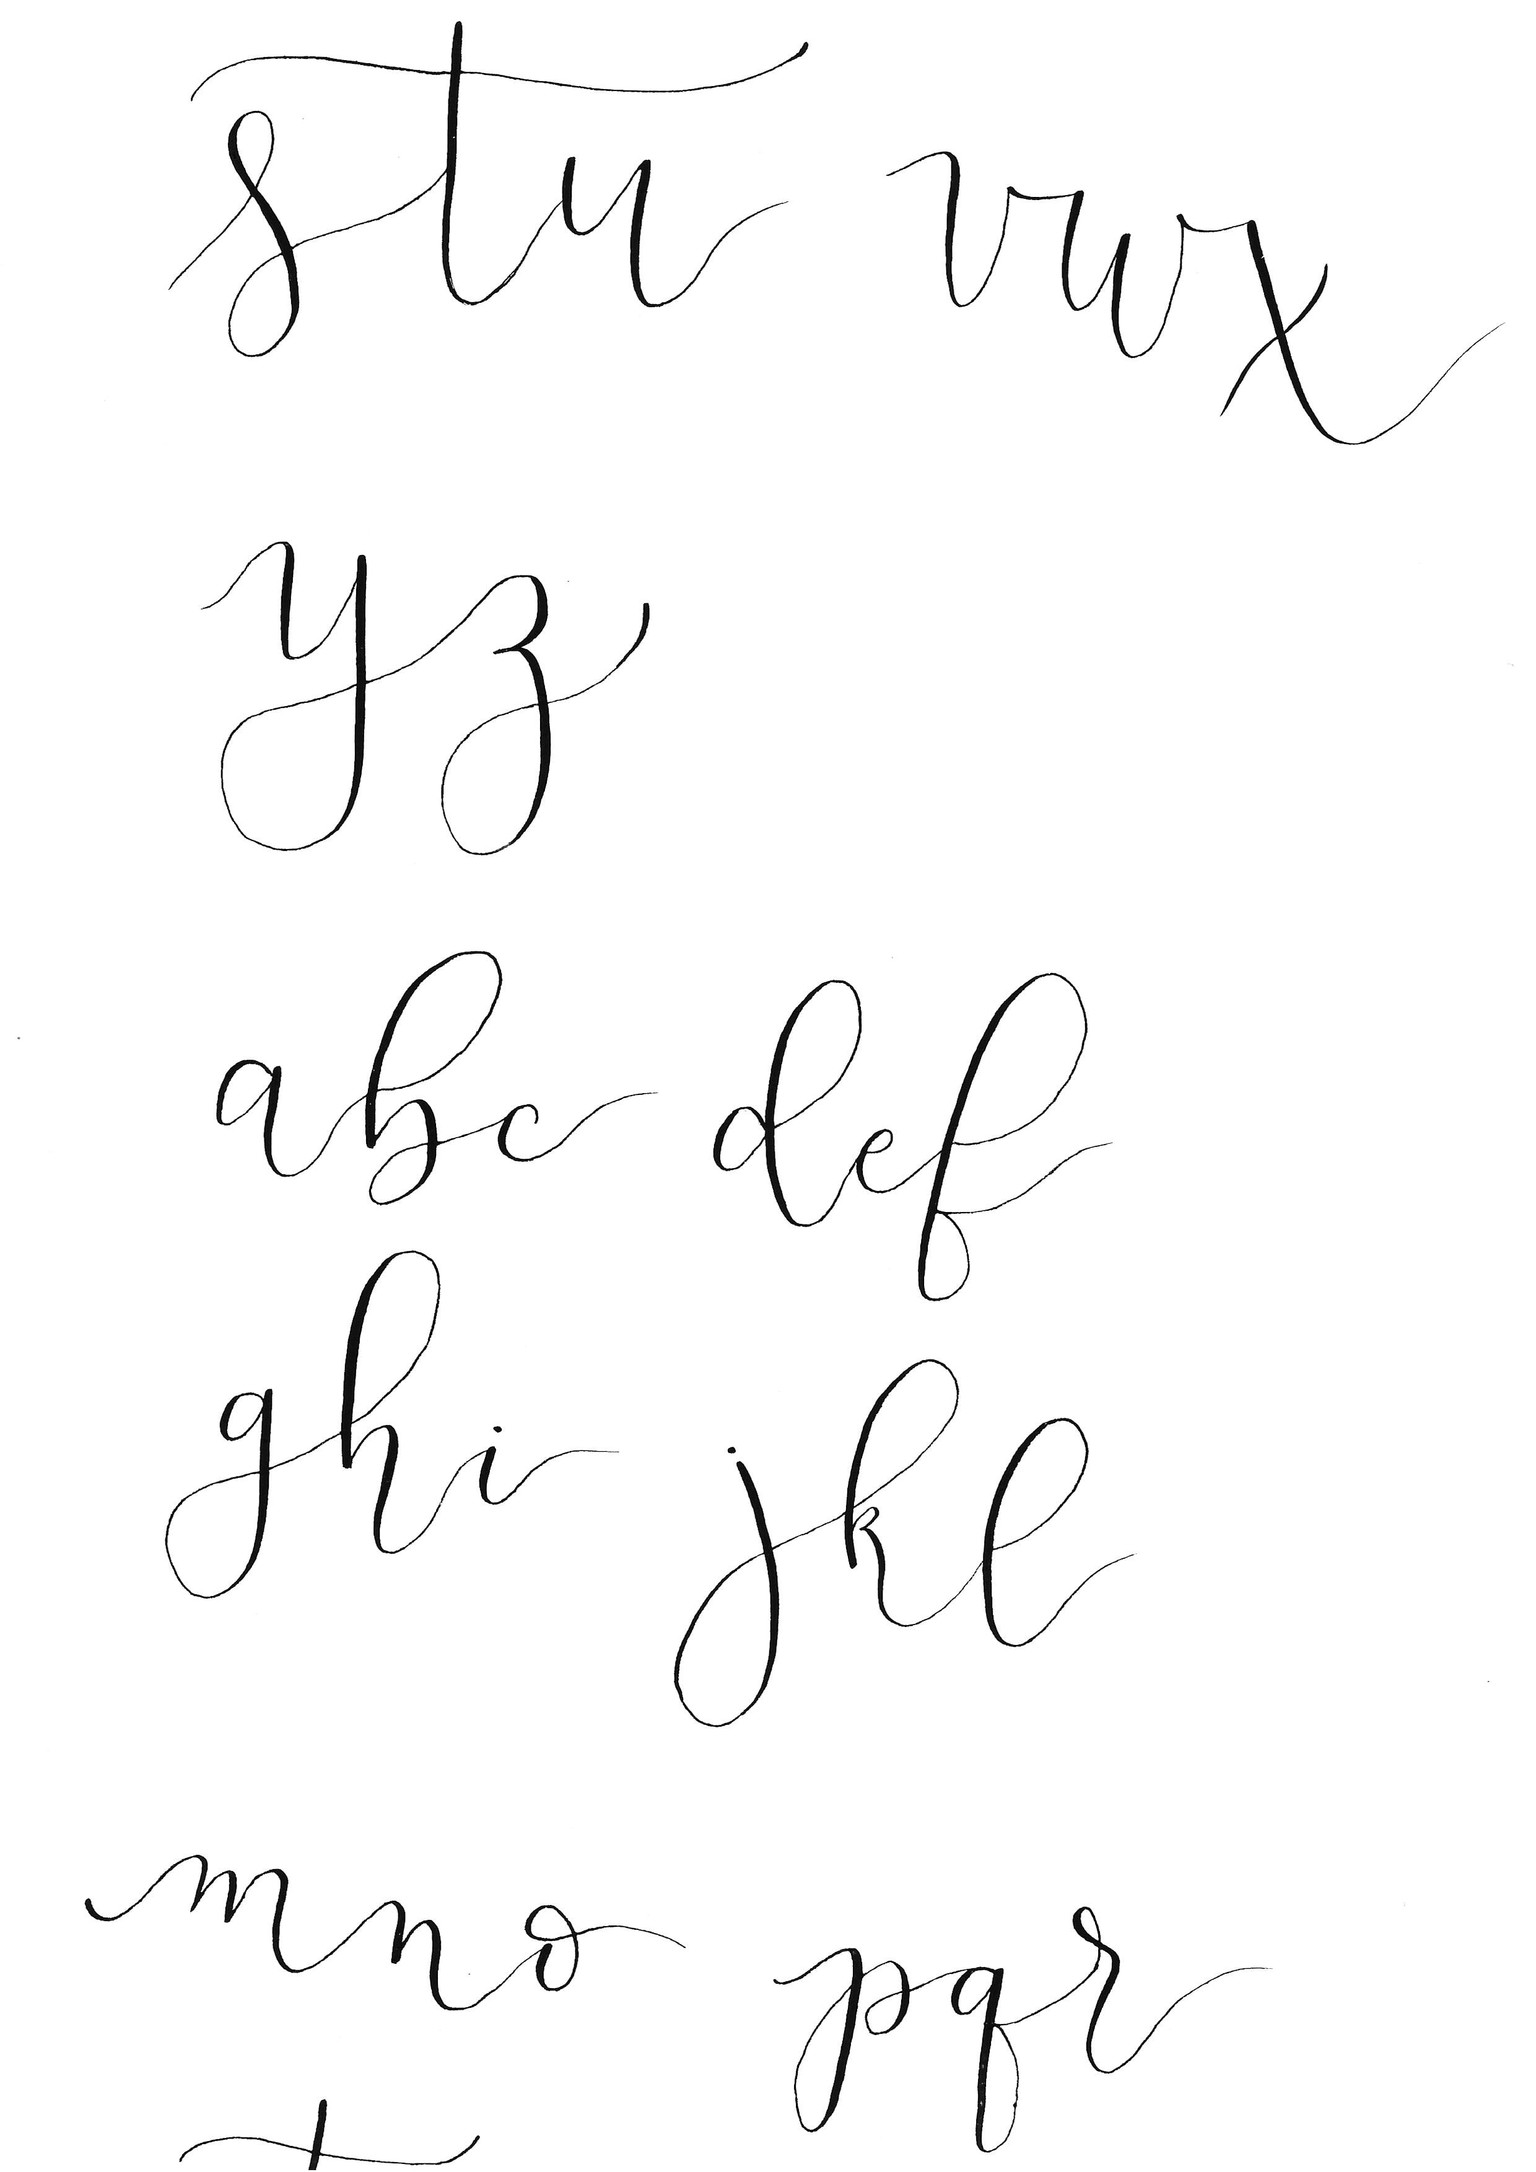 stu vwx
yz
abc def
ghi jkl
mno pqr
t